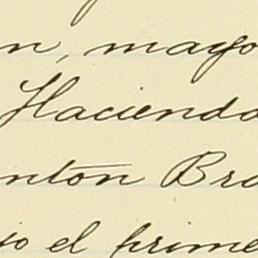 n, mayo
Hacienda
nton Bra
jo el prime